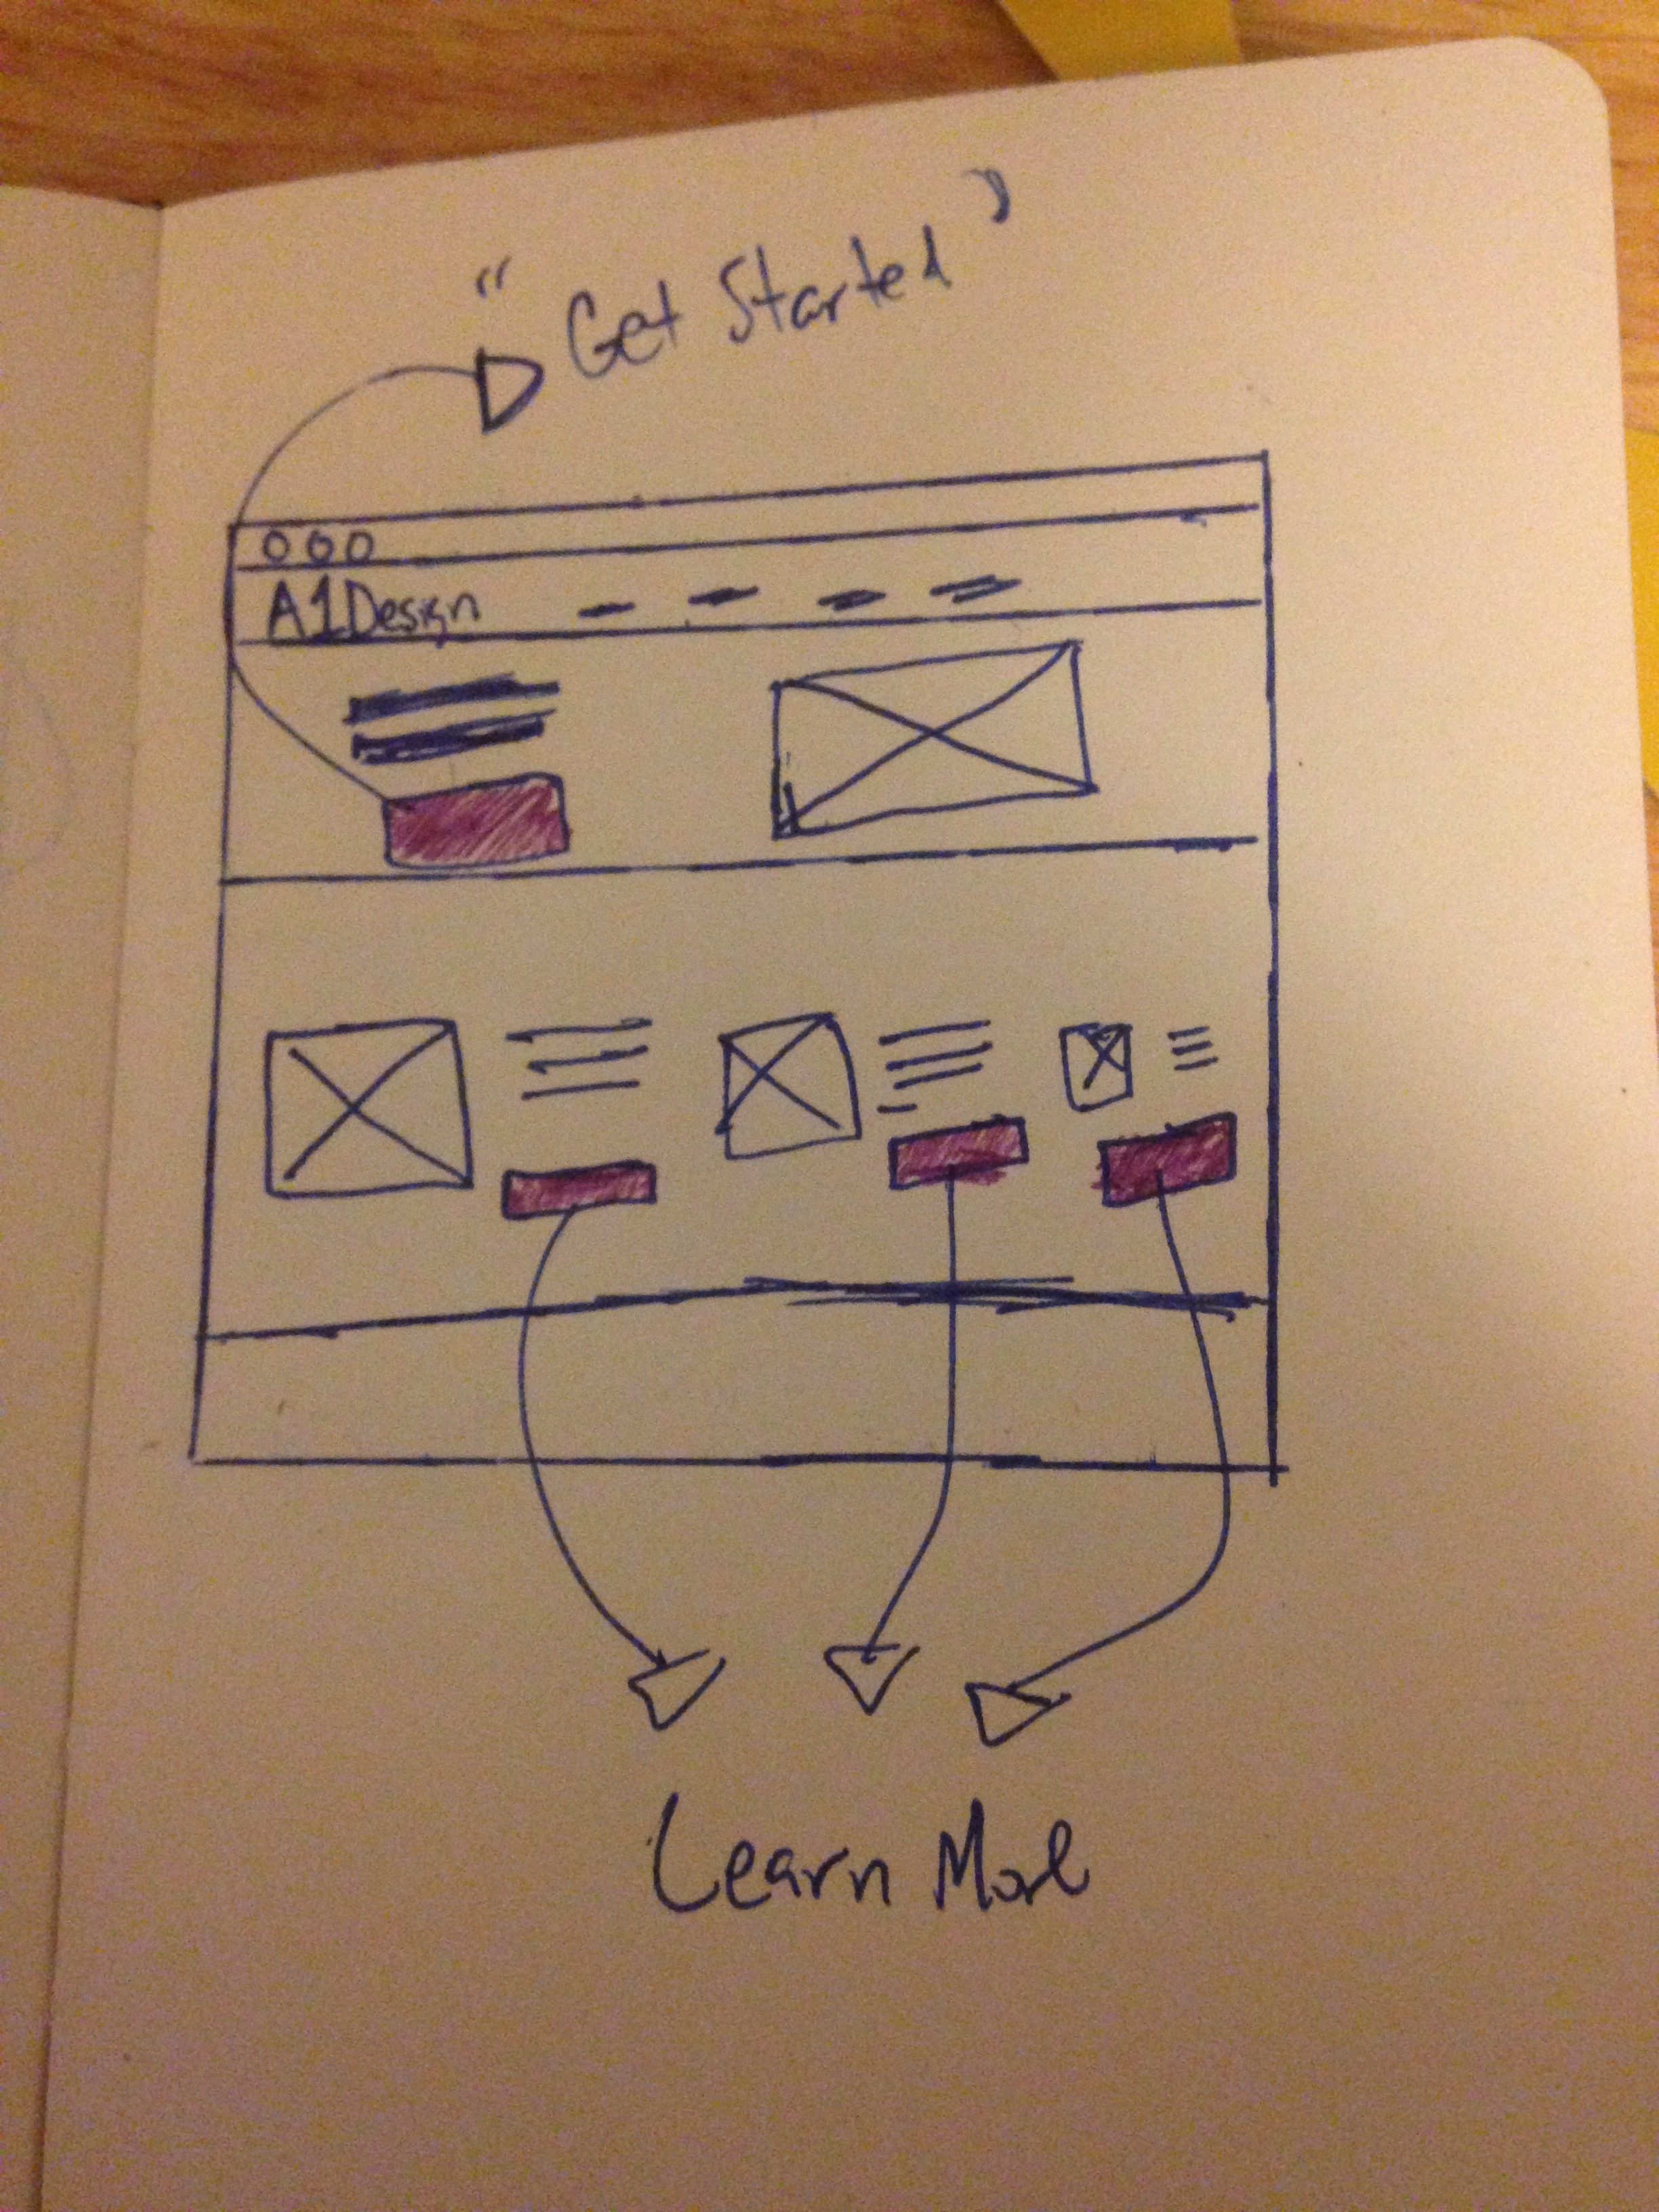 “ Get Started ”
A1Design
Learn More